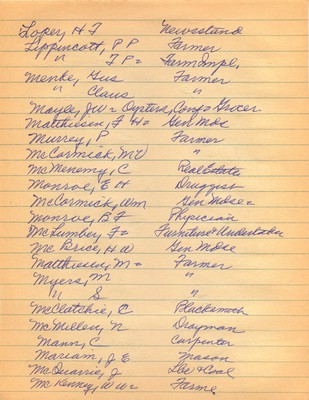 Loper, H F Newsstand
Lippincott, P P Farmer
" T P = Farm Impl,
Menke, Gus Farmer
" Claus "
Mayes, JW = Oysters, Conf = Grocer
Matthiesen, F H = Gen Mdse
Murrey, P Farmer
McCormick, M V "
McMenemy, C Real Estate
Monroe, E H Druggist
McCormick, Wm Gen Mdse =
Monroe, B F Physician
McLumber, F = Furniture & Undertaker
McBrice, H W Gen Mdse
Matthiesen, M = Farmer
Myers, M "
" S "
McClatchie, C Blacksmith
McMillen, N Drayman
Mann, C Carpenter
Mariam, J E Mason
McQuarrie, J Ice & Coal
McKenny, W W = Farme